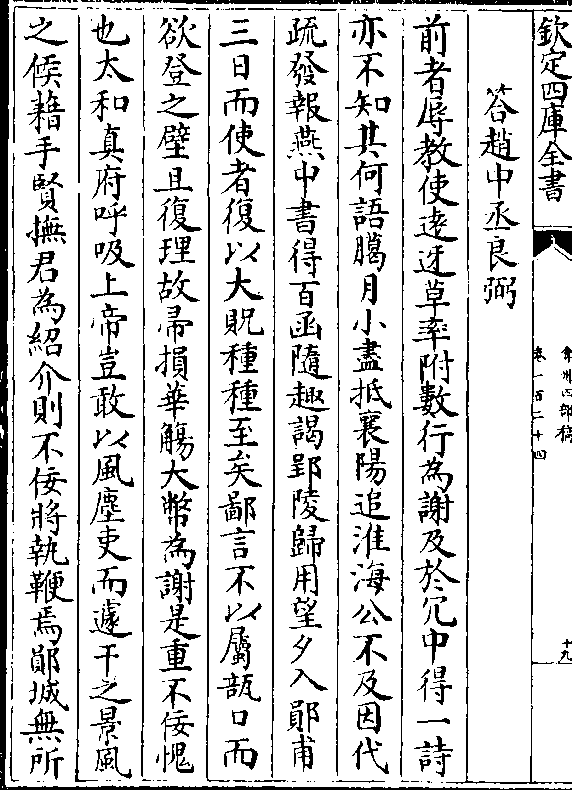 欽定四庫全書
弇州四部稿
卷一百二十四
十九
答趙中丞良弼
前者辱教使逵迓草率附數行為謝及於冗中得一詩
亦不知其何語臈月小盡抵襄陽追淮海公不及因代
疏發報燕中書得百函隨趣謁郢陵歸用望夕入鄖甫
三日而使者復以大貺種種至矣鄙言不以屬瓿口而
欲登之壁且復理故帚損華觴大幣為謝是重不佞愧
也太和真府呼吸上帝豈敢以風塵吏而遽干之景風
之候藉手賢撫君為紹介則不佞將執鞭焉鄖城無所